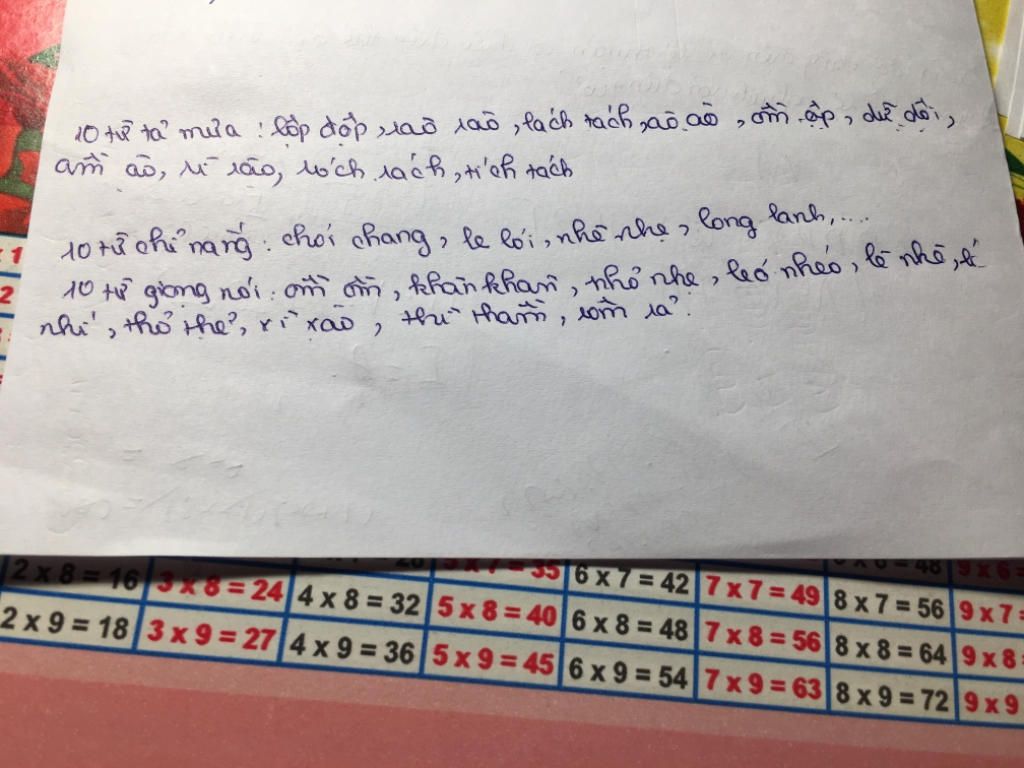 10 từ tả mưa : lộp độp, rào rào, lách tách, ào ào, ồm ộp, dữ dội,
ầm ào, rì rào, róch rách, tích tách
10 từ chỉ nắng : chói chang, le lói, nhè nhẹ, long lanh,....
10 từ giọng nói : ồm ồm, khàn khàn, nhỏ nhẹ, leó nhéo, lè nhè, lí
nhí, thỏ thẻ, xì xào, thì thầm, rôm rả.
2 x 8 = 16 3 x 8 = 24 4 x 8 = 32 5 x 8 = 40 6 x 7 = 42 7 x 7 = 49 8 x 7 = 56 9 x 7 =
2 x 9 = 18 3 x 9 = 27 4 x 9 = 36 5 x 9 = 45 6 x 8 = 48 7 x 8 = 56 8 x 8 = 64 9 x 8
6 x 9 = 54 7 x 9 = 63 8 x 9 = 72 9 x 9